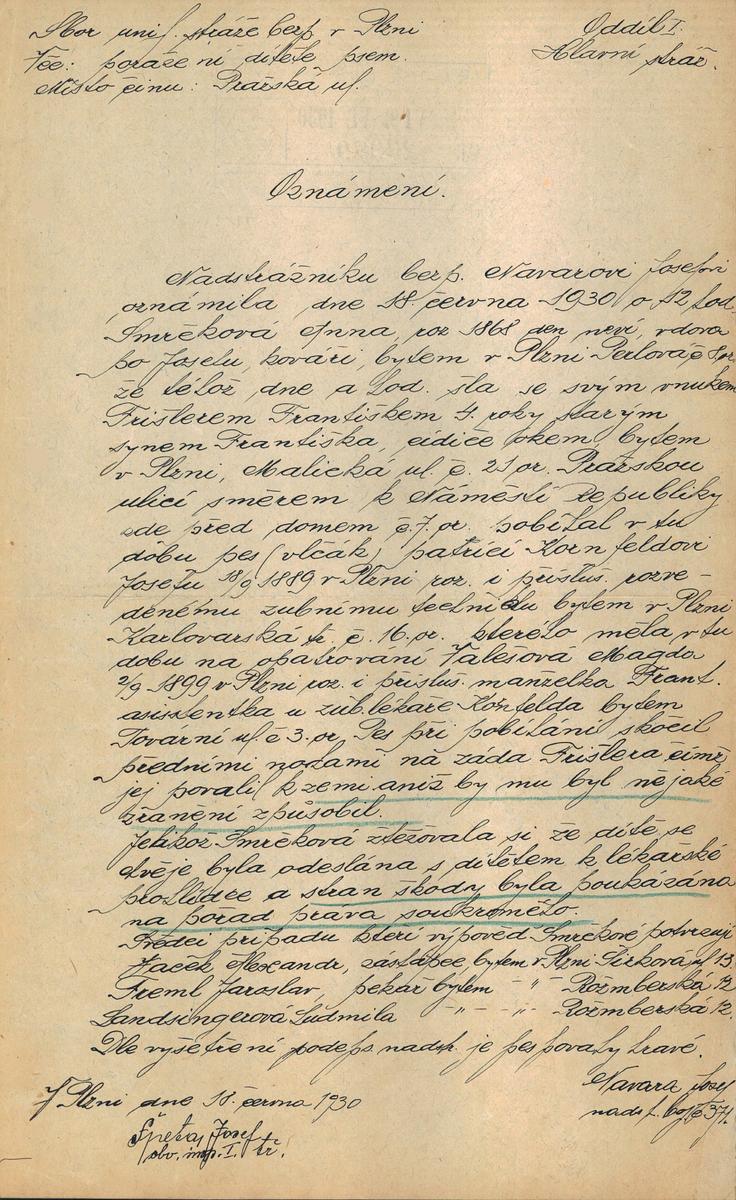 Sbor unif. stráže bezp. v Plzni
Oddíl I.
Věc: poražení dítěte psem.
Hlavní stráž.
Místo činu: Pražská ul.
Oznámení.
Nadstrážníku bezp. Navarovi Josefovi
oznámila dne 18. června 1930 o 12 hod.
Smrčková Anna, roz 1868 den neví, vdova
po Josefu, kováři, bytem v Plzni Perlová č 8 or.
že téhož dne a hod. šla se svým vnukem
Frišlerem Františkem 4. roky starým
synem Františka, cidiče oken, bytem
v Plzni, Malická ul. č. 21 or. Pražskou
ulicí směrem k Náměstí Republiky
kde před domem č. 7. or. pobíhal v tu
dobu pes (vlčák) patřící Kornfeldovi
Josefu 18/9 1889 v Plzni roz. i přísluš. rozve-
denému zubnímu techniku bytem v Plzni
Karlovarská tř. č. 16. or. kterého měla v tu
dobu na opatrování Valešová Magda
2/9 1899 v Plzni roz. i přísluš. manželka Frant.
asistentka u zub. lékaře Kornfelda bytem
Tovární ul. č 3. or. Pes při pobíhání skočil
předními nohami na záda Frišlera čímž
jej povalil k zemi aniž by mu byl nějaké
zranění způsobil.
Jelikož Smrčková stěžovala si že dítě se
chvěje byla odeslána s dítětem k lékařské
prohlídce a stran škody byla poukázána
na pořad práva soukromého.
Svědci případu kteří výpověď Smrčkové potvrzují
Vaček Alexandr, zástupce bytem v Plzni Sirková ul 13
Treml Jaroslav, pekař bytem -"- Rožmberská 12
Landsingerová Ludmila -"- -"- Rožmberská 12.
Dle vyšetření podeps. nadstr. je pes povahy hravé.
Navara Josef
V Plzni dne 18. června 1930
nadst. boz č 371.
Josef
obv. insp. I. tř.